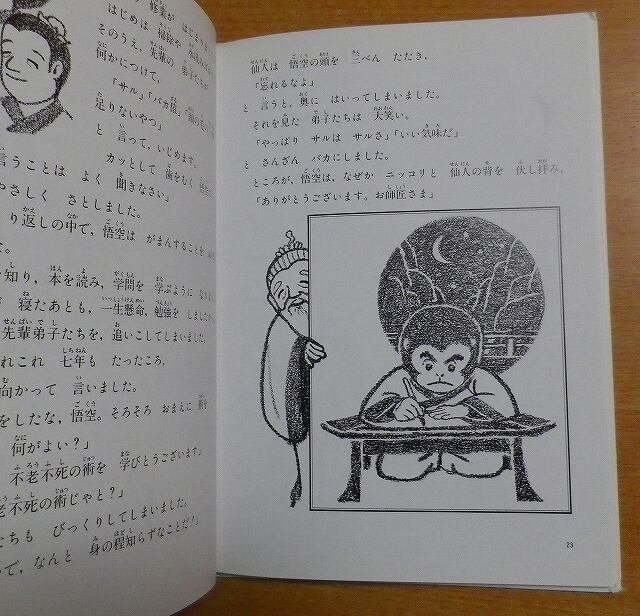 修業が はじまりま
はじめは 掃除や
そのうえ、先輩の 弟子たちが
何かにつけて、
「サル」「バカ猿」
足りないやつ」
と 言って、いじめます。
カッとして 歯をむく
言うことは よく 聞きなさい」
やさしく さとしました。
り返しの中で、悟空は がまんすることを
た。
知り、本を読み、学問を 学ぶように
寝たあとも、一生懸命、勉強を しました
先輩弟子たちを、追いこしてしまいました。
れこれ 七年も たったころ、
向かって 言いました。
をしたな、悟空。そろそろ おまえに 術を
何がよい?」
不老不死の術を 学びとうございます」
老不死の術じゃと?」
たちも びっくりしてしまいました。
って、なんと 身の程知らずなことだ!」
仙人は 悟空の頭を 三べん たたき、
「忘れるなよ」
と 言うと、奥に はいってしまいました。
それを見た 弟子たちは 大笑い。
「やっぱり サルは サルさ」「いい気味だ」
と さんざん バカにしました。
ところが、悟空は、なぜか ニッコリと 仙人の背を 伏し拝み、
「ありがとうございます。お師匠さま」
23